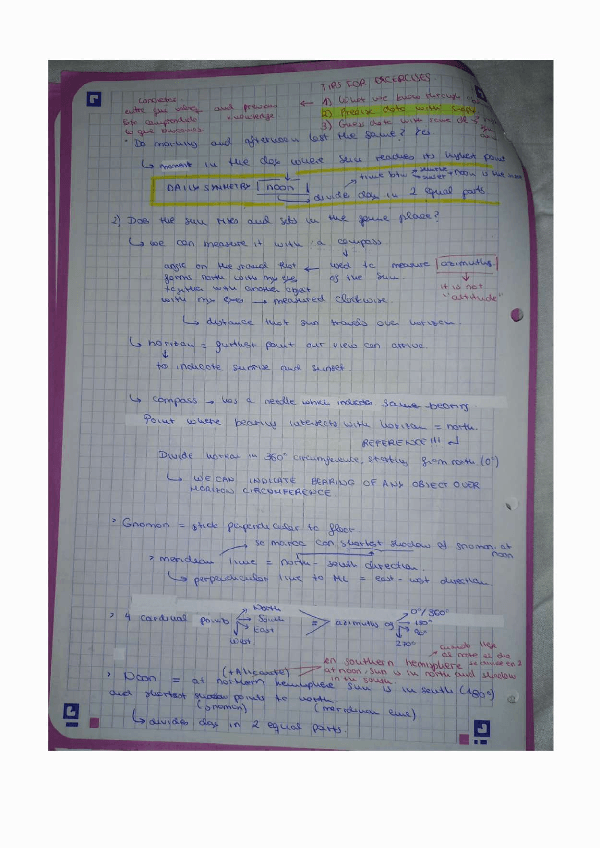 TIPS FOR EXERCISES.
1) What we know through
2) Precise data with
3) Guess data with some
* Do morning and afternoon last the same? Yes
↳ moment in the day where sun reaches its highest point
DAILY SYMMETRY noon
time btw
noon is the
divides day in 2 equal parts
2) Does the sun rises and sets in the same place?
↳ we can measure it with a compass
angle on the ground that ← used to measure azimuths
forms north with my eye of the sun
together with another object
it is not "altitude"
with my eyes → measured clockwise.
↳ distance that sun travels over horizon.
↳ horizon = furthest point our view can arrive
to indicate sunrise and sunset.
↳ compass → has a needle which indicates same bearing
Point where bearing intersects with horizon = north.
REFERENCE!!!
Divide horizon in 360° circumference, starting from north (0°)
↳ WE CAN INDICATE BEARING OF ANY OBJECT OVER
HORIZON CIRCUMFERENCE
> Gnomon = stick perpendicular to floor
se marca con shortest shadow of gnomon at
noon
> meridian line = north-south direction.
↳ perpendicular line to ML = east-west direction.
> 4 cardinal points North South East West = azimuths of 0°/360° 180° 90° 270°
(+Alicante) en southern hemisphere
at noon, sun is in north and shadow
in the south
> Noon = at northern hemisphere sun is in south (180°)
and shortest shadow points to north
(gnomon) (meridian line)
↳ divides day in 2 equal parts.